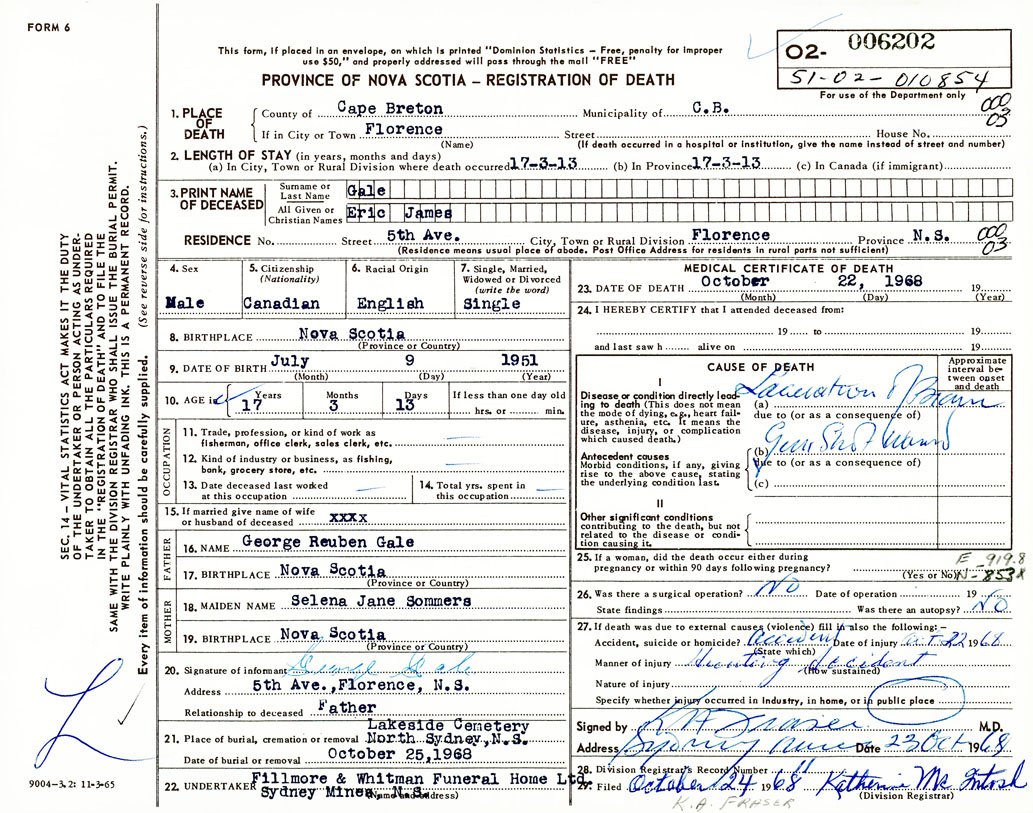 FORM 6
This form, if placed in an envelope, on which is printed "Dominion Statistics – Free, penalty for improper
use $50," and properly addressed will pass through the mail "FREE"
PROVINCE OF NOVA SCOTIA – REGISTRATION OF DEATH
O2- 006202
S1-02-010854
For use of the Department only
000
03
1. PLACE OF DEATH
County of Cape Breton Municipality of C.B.
If in City or Town Florence Street House No.
(Name) (If death occurred in a hospital or institution, give the name instead of street and number)
2. LENGTH OF STAY (in years, months and days)
(a) In City, Town or Rural Division where death occurred 17-3-13 (b) In Province 17-3-13 (c) In Canada (if immigrant)
3. PRINT NAME OF DECEASED
Surname or Last Name Gale
All Given or Christian Names Eric James
RESIDENCE No. Street 5th Ave. City, Town or Rural Division Florence Province N.S.
(Residence means usual place of abode. Post Office Address for residents in rural parts not sufficient)
000
03
4. Sex
Male
5. Citizenship
(Nationality)
Canadian
6. Racial Origin
English
7. Single, Married,
Widowed or Divorced
(write the word)
Single
8. BIRTHPLACE Nova Scotia
(Province or Country)
9. DATE OF BIRTH July 9 1951
(Month) (Day) (Year)
10. AGE in Years Months Days If less than one day old
17 3 13 hrs. or min.
OCCUPATION
11. Trade, profession, or kind of work as
fisherman, office clerk, sales clerk, etc.
12. Kind of industry or business, as fishing,
bank, grocery store, etc.
13. Date deceased last worked
at this occupation
14. Total yrs. spent in
this occupation
15. If married give name of wife
or husband of deceased xxxx
FATHER
16. NAME George Reuben Gale
17. BIRTHPLACE Nova Scotia
(Province or Country)
MOTHER
18. MAIDEN NAME Selena Jane Sommers
19. BIRTHPLACE Nova Scotia
(Province or Country)
20. Signature of informant George Gale
Address 5th Ave.,Florence, N.S.
Relationship to deceased Father
Lakeside Cemetery
21. Place of burial, cremation or removal North Sydney,N.S.
Date of burial or removal October 25,1968
Fillmore & Whitman Funeral Home Ltd.
22. UNDERTAKER Sydney Mines, N.S.
(Name and address)
MEDICAL CERTIFICATE OF DEATH
23. DATE OF DEATH October 22, 1968 19
(Month) (Day) (Year)
24. I HEREBY CERTIFY that I attended deceased from:
19 to 19
and last saw h alive on 19
CAUSE OF DEATH
Approximate
interval be-
tween onset
and death
I
Disease or condition directly lead-
ing to death (This does not mean
the mode of dying, e.g., heart fail-
ure, asthenia, etc. It means the
disease, injury, or complication
which caused death.)
(a) Laceration of Brain
due to (or as a consequence of)
Antecedent causes
Morbid conditions, if any, giving
rise to the above cause, stating
the underlying condition last.
(b) Gun Shot Wound
due to (or as a consequence of)
(c)
II
Other significant conditions
contributing to the death, but not
related to the disease or condi-
tion causing it.
25. If a woman, did the death occur either during
pregnancy or within 90 days following pregnancy?
(Yes or No)
E-919.8
N-853
26. Was there a surgical operation? No Date of operation 19
State findings Was there an autopsy? No
27. If death was due to external causes (violence) fill in also the following:–
Accident, suicide or homicide? accident Date of injury Oct 22 1968
(State which)
Manner of injury Hunting Accident
(How sustained)
Nature of injury
Specify whether injury occurred in industry, in home, or in public place
Signed by K A Fraser M.D.
Address Sydney Mines Date 23 Oct 1968
28. Division Registrar's Record Number
29. Filed October 24 1968 Katherine McIntosh
(Division Registrar)
K.A. FRASER
SEC. 14 – VITAL STATISTICS ACT MAKES IT THE DUTY
OF THE UNDERTAKER OR PERSON ACTING AS UNDER-
TAKER TO OBTAIN ALL THE PARTICULARS REQUIRED
IN THE "REGISTRATION OF DEATH" AND TO FILE THE
SAME WITH THE DIVISION REGISTRAR WHO SHALL ISSUE THE BURIAL PERMIT.
WRITE PLAINLY WITH UNFADING INK. THIS IS A PERMANENT RECORD.
Every item of information should be carefully supplied. (See reverse side for instructions.)
9004-3.2: 11-3-65